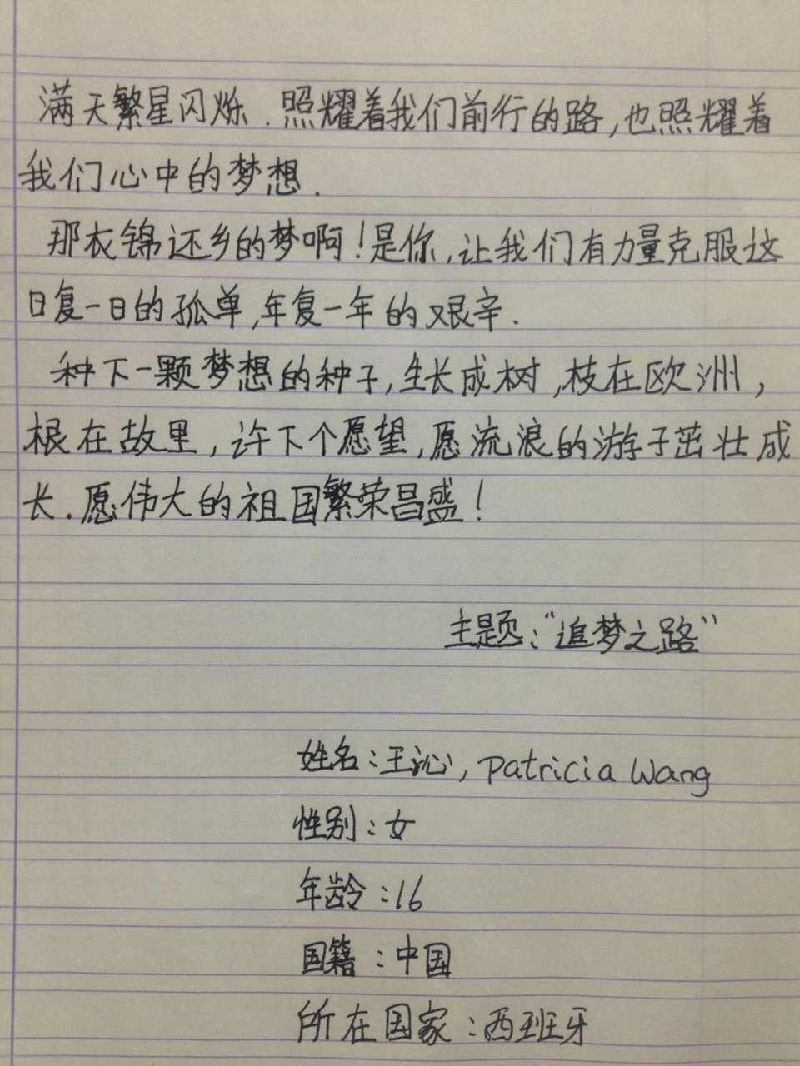 满天繁星闪烁.照耀着我们前行的路,也照耀着
我们心中的梦想.
那衣锦还乡的梦啊!是你,让我们有力量克服这
日复一日的孤单,年复一年的艰辛.
种下一颗梦想的种子,生长成树,枝在欧洲,
根在故里,许下个愿望,愿流浪的游子茁壮成
长.愿伟大的祖国繁荣昌盛!
主题:“追梦之路”
姓名:王沁,Patricia Wang
性别:女
年龄:16
国籍:中国
所在国家:西班牙